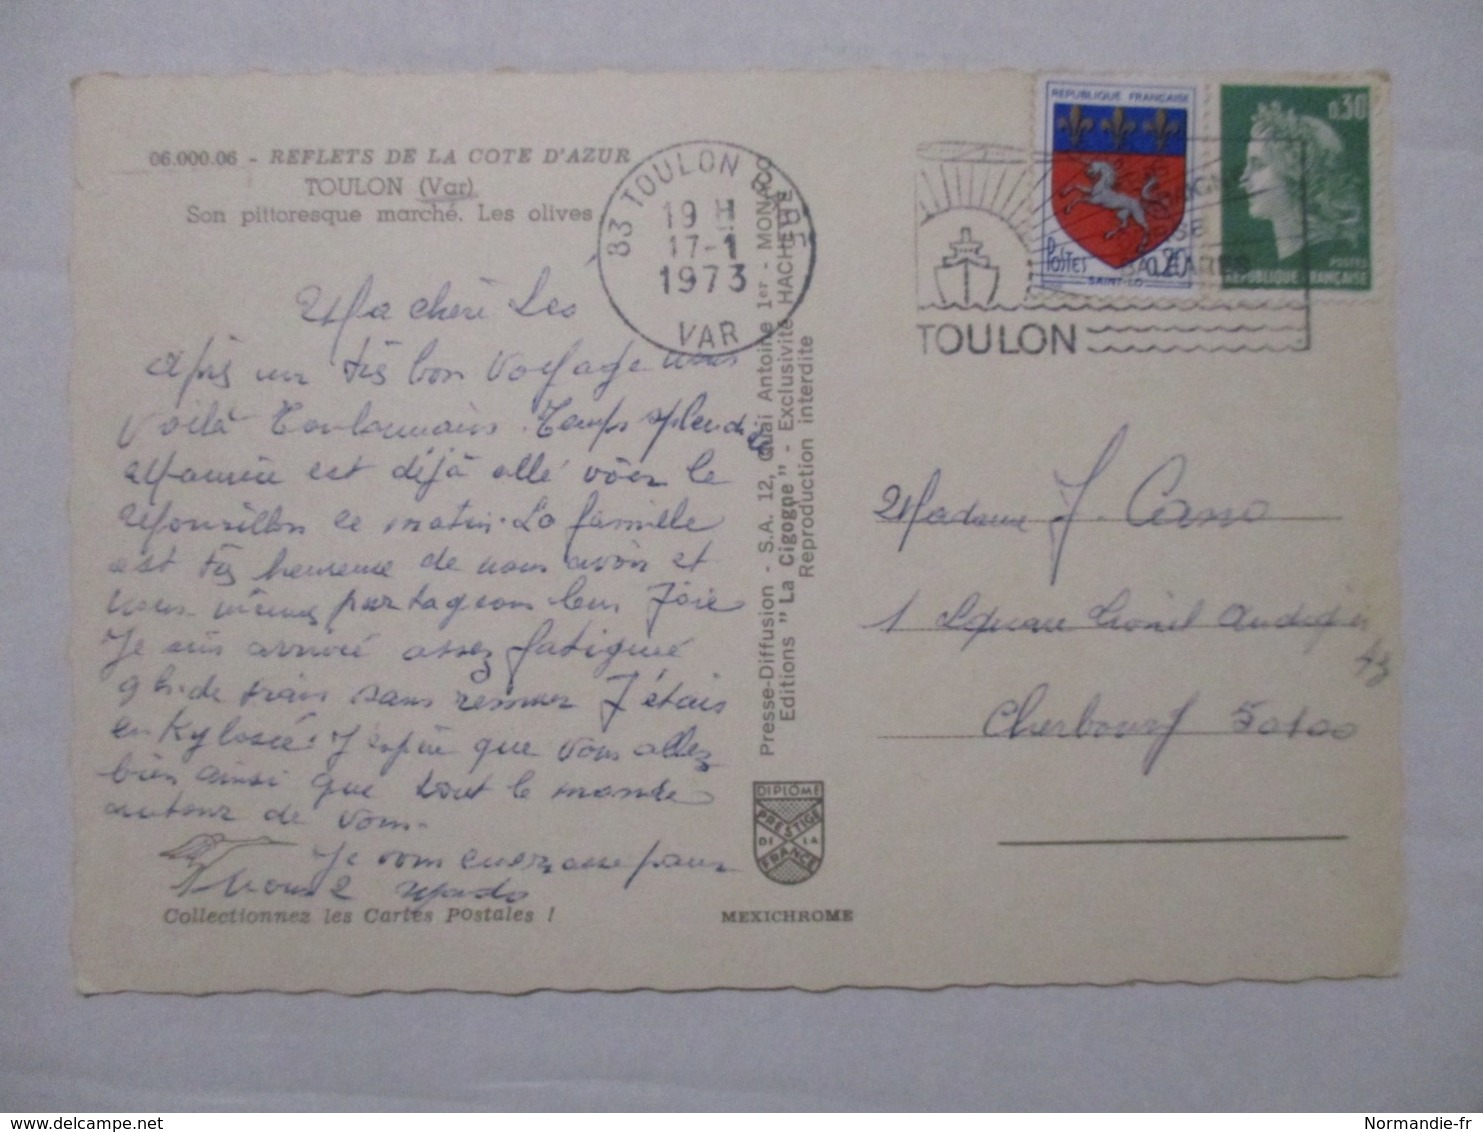 06.000.06 - REFLETS DE LA COTE D'AZUR
TOULON (Var)
Son pittoresque marché. Les olives
Ma cheri Léo
Après un très bon voyage nous
voilà Toulonnais. Temps splendide
est déjà allé voir le
ce matin. La famille
est très heureuse de nous avoir et
nous mêmes partageons leur joie
Je suis arrivé assez fatigué
9 h. de train sans remuer J'étais
en Kylosé. J'espère que vous allez
bien ainsi que tout le monde
autour de vous.
Je vous embrasse pour
nous 2 Mado
Collectionnez les Cartes Postales !
83 TOULON GARE
19 H
17-1
1973
VAR
Presse-Diffusion - S.A. 12, Quai Antoine 1er - MONACO
Editions "La Cigogne" - Exclusivité HACHETTE
Reproduction interdite
DIPLOME
PRESTIGE
DE LA
FRANCE
MEXICHROME
REPUBLIQUE FRANÇAISE
POSTES
0.20
SAINT-LO
0.30
POSTES
REPUBLIQUE FRANÇAISE
BALEARES
TOULON
Madame J. Cano
1 Square Lionel Audigier
Cherbourg 50100
Normandie-fr